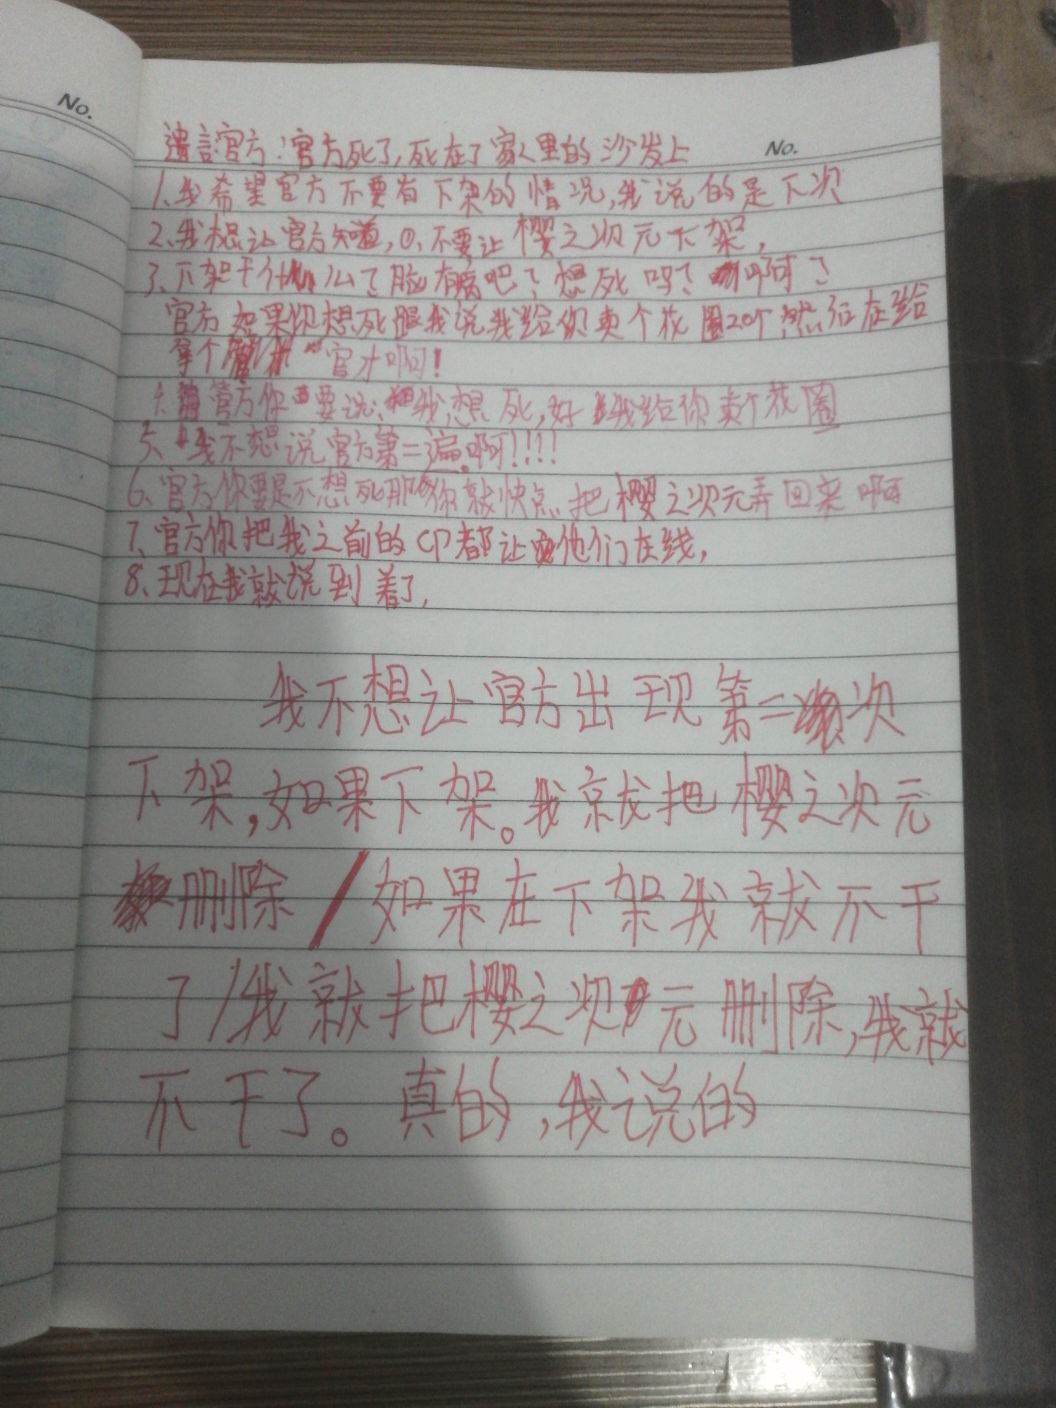 No.
No.
遗言官方:官方死了,死在了家里的沙发上
1、我希望官方不要有下架的情况,我说的是下次
2、我想让官方知道,不要让樱之次元下架,
3、下架干什么了脸有病吧?想死吗?啊?
官方如果你想死跟我说我给你卖个花圈20个然后在给
拿个官才啊!
4、官方你要说:我想死,好我给你卖个花圈
5、我不想说官方第二遍啊!!!!
6、官方你要是不想死那你就快点把樱之次元弄回来啊
7、官方你把我之前的CP都让他们在线,
8、现在我就说到着了,
我不想让官方出现第二次
下架,如果下架。我就把樱之次元
删除/如果在下架我就不干
了/我就把樱之次元删除,我就
不干了。真的,我说的